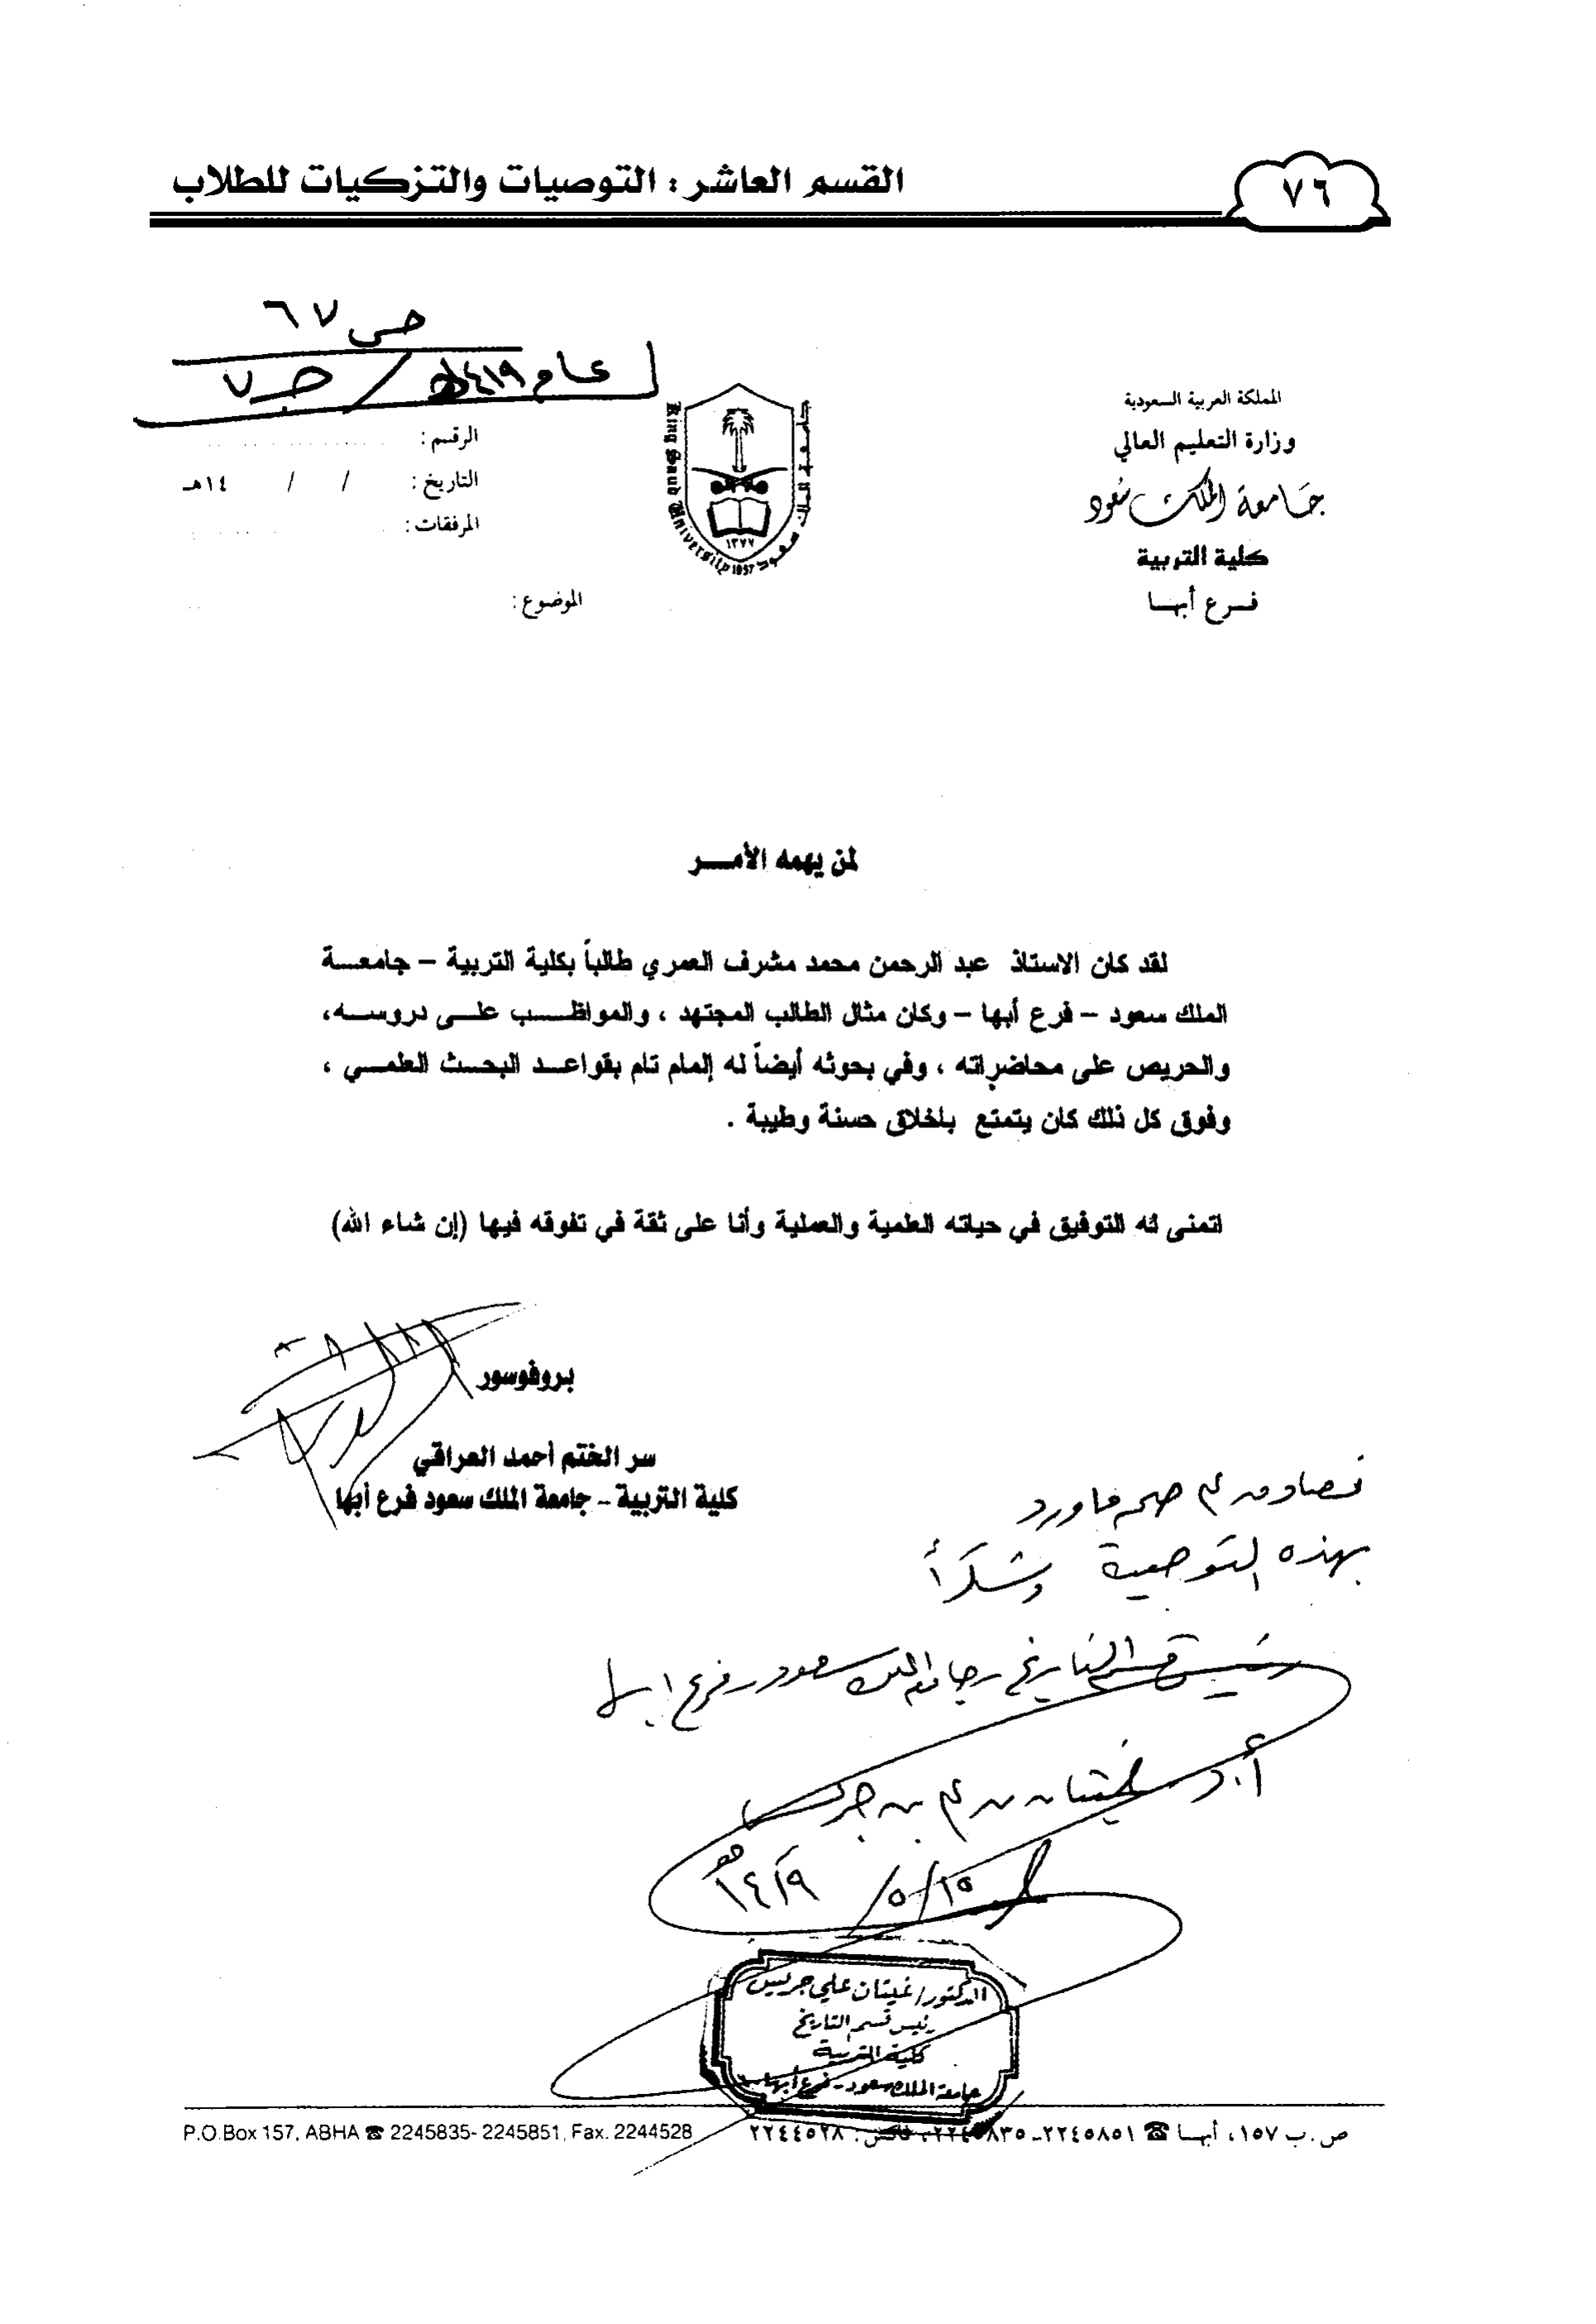 القسم العاشر : التوصيات والتزكيات للطلاب
٧٦
ص ٦٧
عام ١٤١٩هـ / جـ ٧
المملكة العربية السعودية
وزارة التعليم العالي
جامعة الملك سعود
كلية التربية
فرع أبها
جامعة الملك سعود
King Saud University
١٣٧٧
1957
الرقم :
التاريخ : / / ١٤هـ
المرفقات :
الموضوع :
لمن يهمه الأمـــر
لقد كان الاستاذ عبد الرحمن محمد مشرف العمري طالباً بكلية التربية – جامعــة
الملك سعود – فرع أبها – وكان مثال الطالب المجتهد ، والمواظــب علــى دروســه،
والحريص على محاضراته ، وفي بحوثه أيضاً له إلمام تام بقواعــد البحــث العلمــي ،
وفوق كل ذلك كان يتمتع باخلاق حسنة وطيبة .
اتمنى له التوفيق في حياته العلمية والعملية وأنا على ثقة في تفوقه فيها (إن شاء الله)
بروفوسور
سر الختم أحمد العراقي
كلية التربية – جامعة الملك سعود فرع أبها
نصادق على صحة ما ورد
بهذه التوصية وشكراً
رئيس قسم التاريخ بجامعة الملك سعود فرع أبها
أ.د. غيثان بن علي بن جريس
١٥/ ٥/ ١٤١٩هـ
الدكتور/ غيثان علي جريس
رئيس قسم التاريخ
كلية التربية
جامعة الملك سعود - فرع أبها
P.O.Box 157, ABHA ☎ 2245835- 2245851, Fax. 2244528
ص.ب ١٥٧، أبهـا ☎ ٢٢٤٥٨٥١ـ ٢٢٤٥٨٣٥، فاكس: ٢٢٤٤٥٢٨